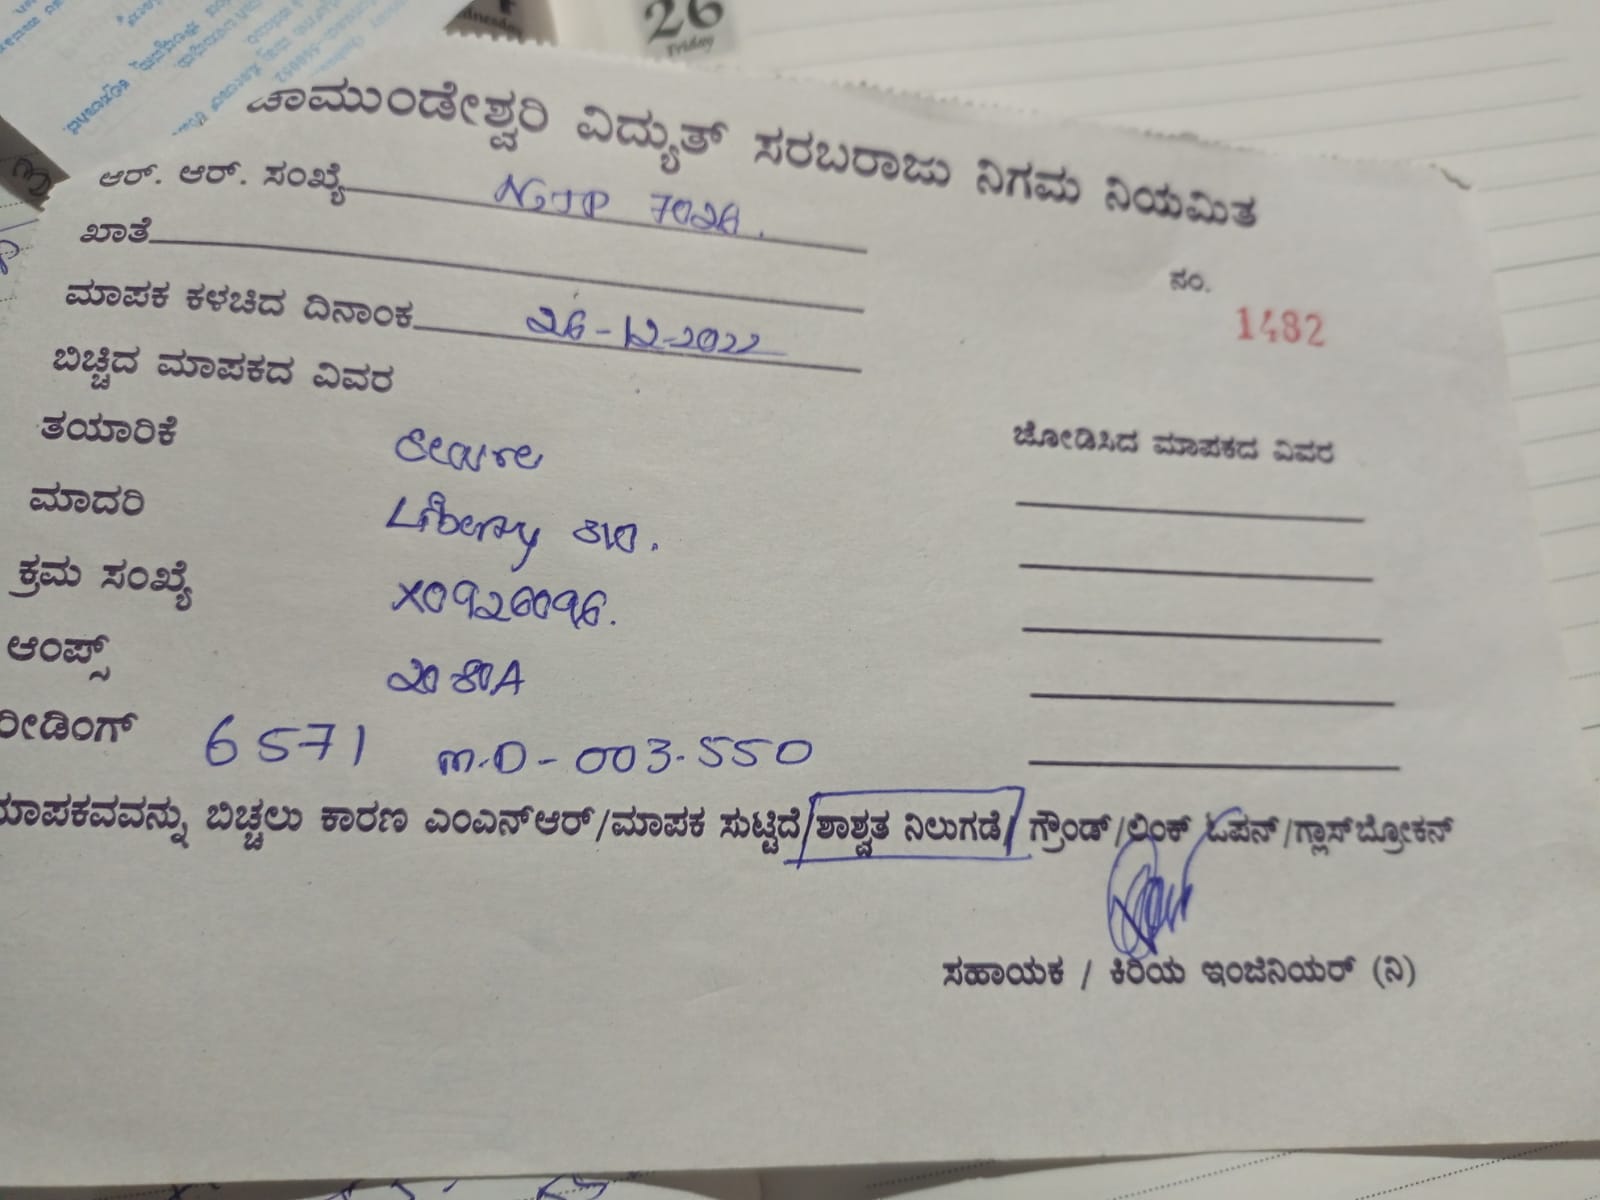 26
Friday
ಚಾಮುಂಡೇಶ್ವರಿ ವಿದ್ಯುತ್ ಸರಬರಾಜು ನಿಗಮ ನಿಯಮಿತ
ಆರ್. ಆರ್. ಸಂಖ್ಯೆ
ಖಾತೆ
ನಂ.
1482
ಮಾಪಕ ಕಳಚಿದ ದಿನಾಂಕ 26-12-2022
ಬಿಚ್ಚಿದ ಮಾಪಕದ ವಿವರ
ಜೋಡಿಸಿದ ಮಾಪಕದ ವಿವರ
ತಯಾರಿಕೆ Secure
ಮಾದರಿ Liberty 310.
ಕ್ರಮ ಸಂಖ್ಯೆ X0926096.
ಆಂಪ್ಸ್
ರೀಡಿಂಗ್ 6571 M.D - 003.550
ಮಾಪಕವವನ್ನು ಬಿಚ್ಚಲು ಕಾರಣ ಎಂಎನ್ಆರ್/ಮಾಪಕ ಸುಟ್ಟಿದೆ/ಶಾಶ್ವತ ನಿಲುಗಡೆ/ ಗ್ರೌಂಡ್/ಲಿಂಕ್ ಓಪನ್/ಗ್ಲಾಸ್ ಬ್ರೋಕನ್
ಸಹಾಯಕ / ಕಿರಿಯ ಇಂಜಿನಿಯರ್ (ನಿ)